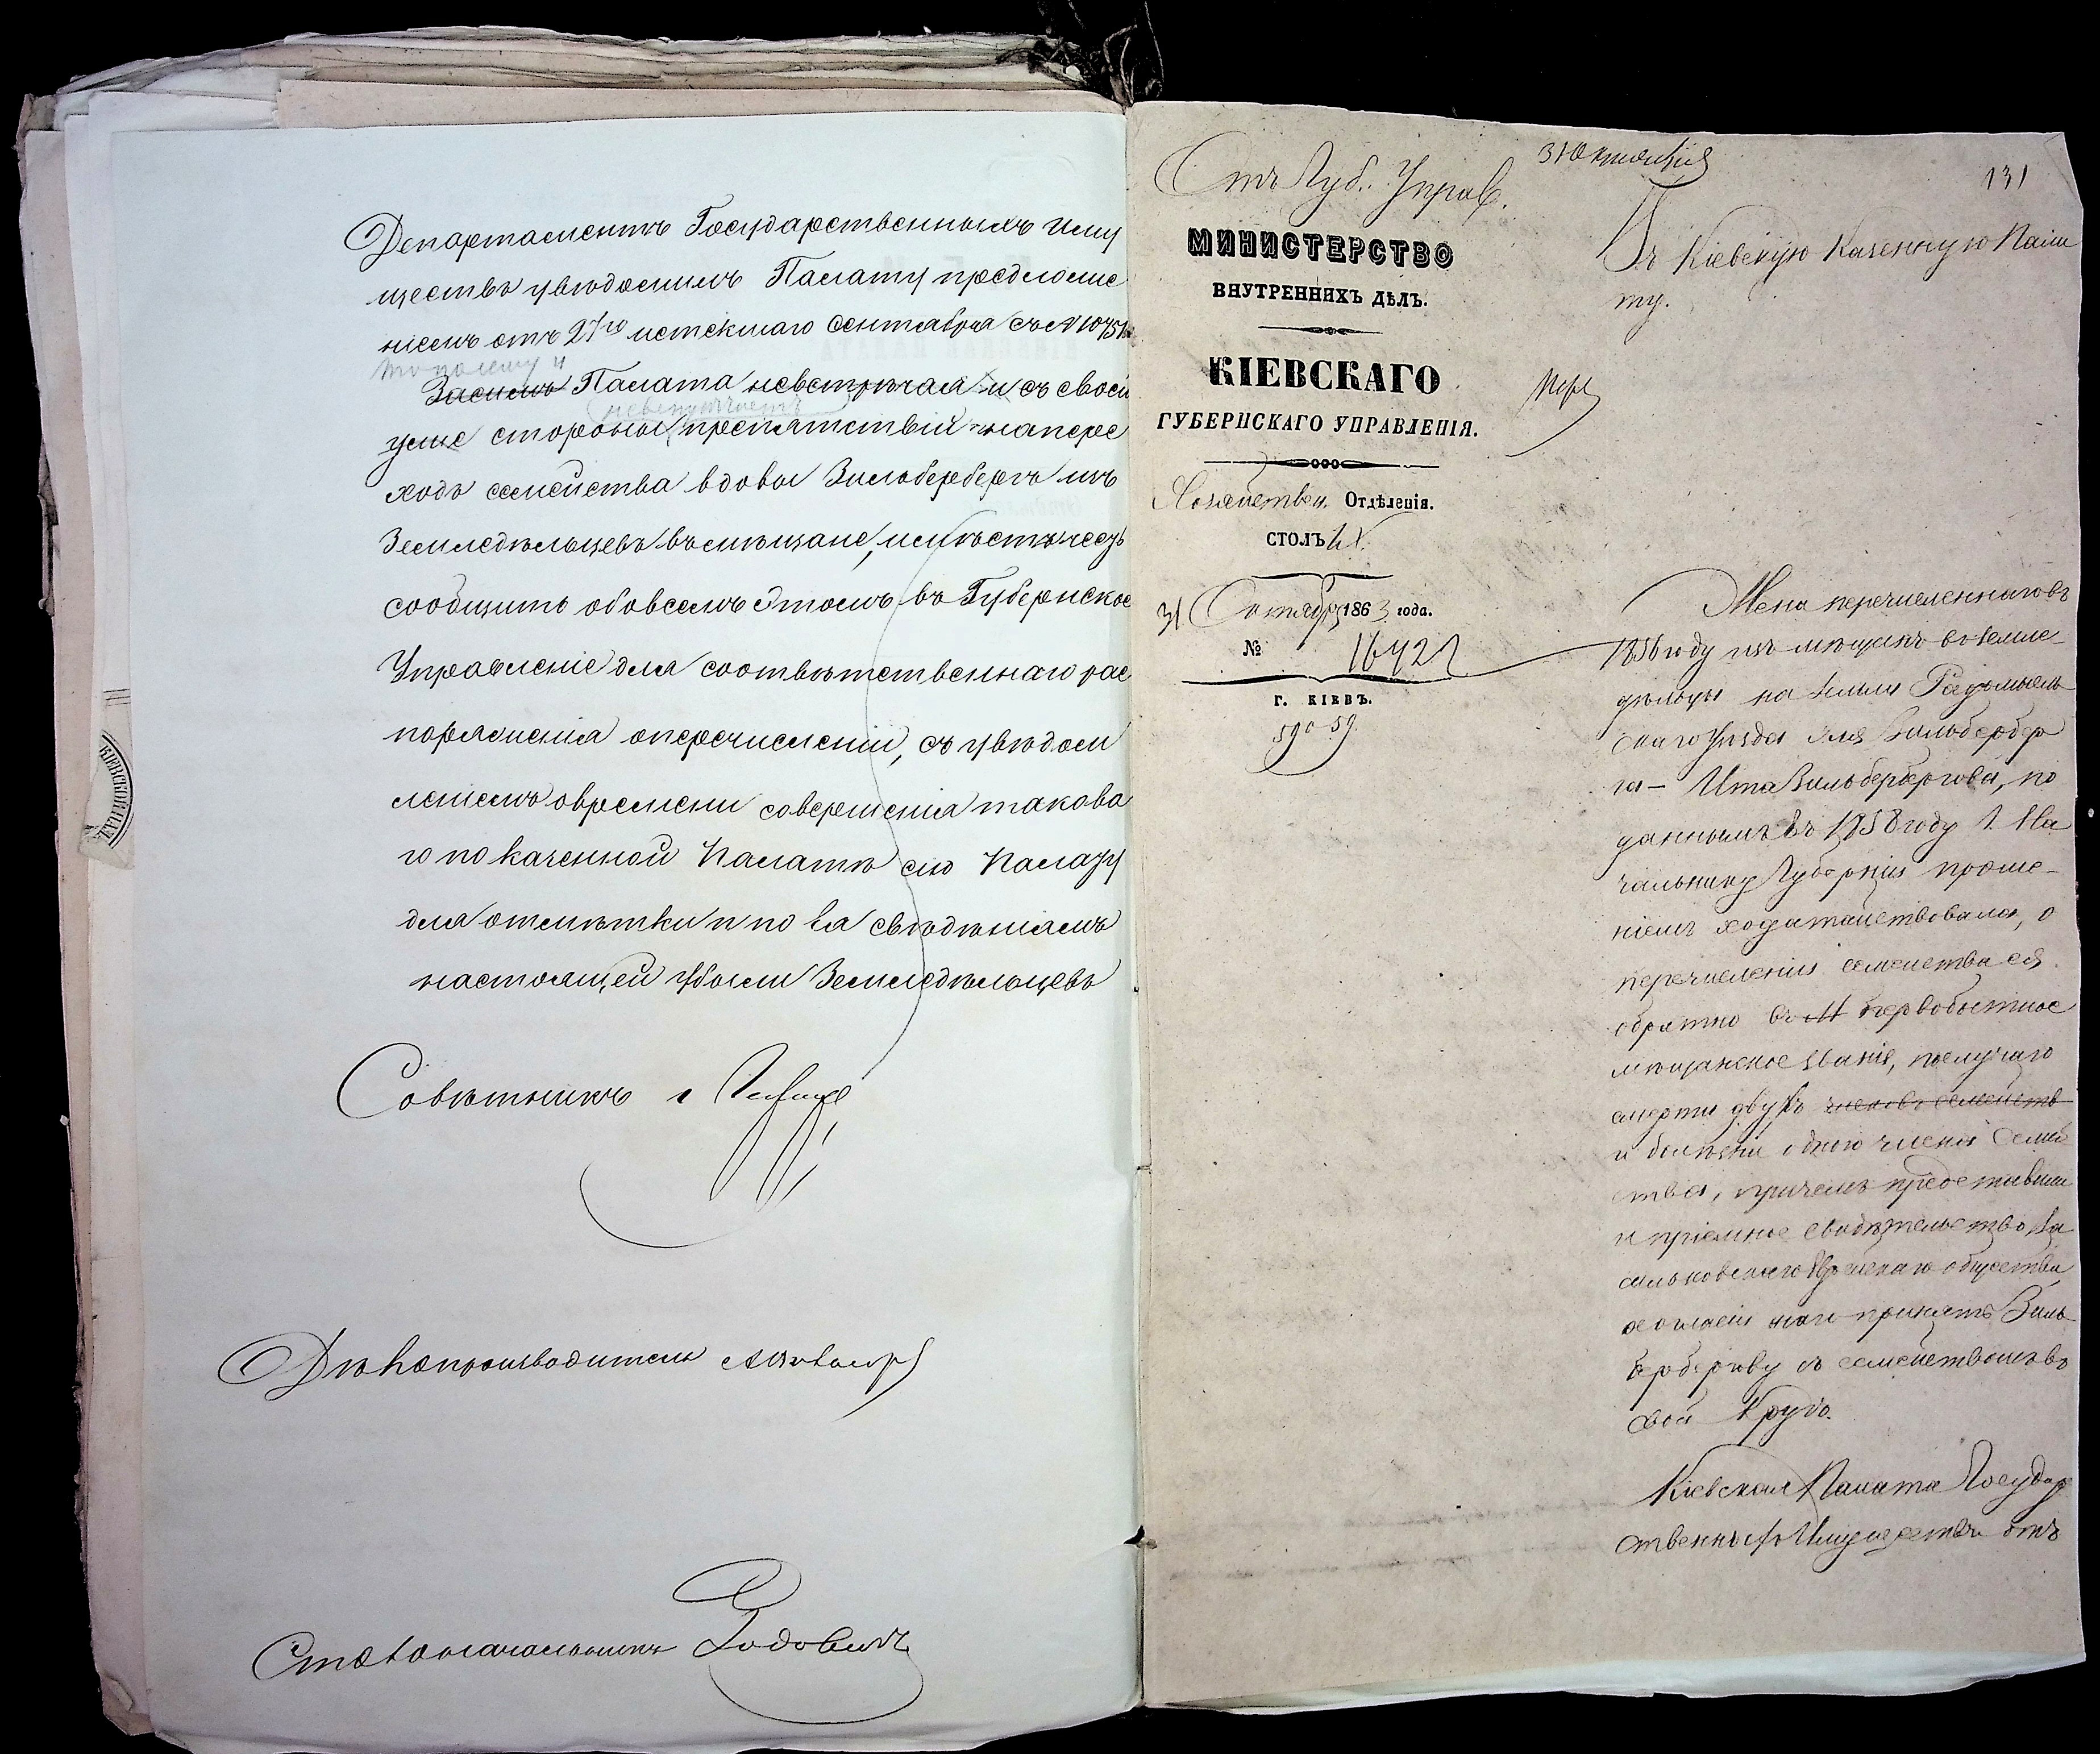 Департаментъ Государственныхъ Иму
ществъ увѣдомилъ Палату предложе
ніемъ отъ 27го истекшаго Сентября съ №
потому и
Засимъ Палата невстрѣчая и съ своей
невстрѣчаетъ
уже стороны препятствій напере
ходъ семейства вдовы Зильберберга изъ
Земледѣльцевъ въ мѣщане, имѣетъ честь
сообщить обовсемъ этомъ въ Губернское
Управленіе для соотвѣтственнаго рас
поряженія оперечисленіи, съ увѣдом
леніемъ овремени совершенія таково
го по казенной Палатѣ сію Палату
для отмѣтки и по ея свѣдѣніямъ
настоящей убыли Земледѣльцевъ
Совѣтникъ
Дѣлопроизводитель
Столоначальникъ
КІЕВСКОЙ
Отъ Губ. Управ.
31 Октября
131
МИНИСТЕРСТВО
ВНУТРЕННИХЪ ДѢЛЪ.
КІЕВСКАГО
ГУБЕРНСКАГО УПРАВЛЕНІЯ.
Хозяйствен. Отдѣленія.
СТОЛЪ
31 Октября 1863 года.
№ 16421
Г. КІЕВЪ.
Въ Кіевскую Казенную Пала
ту.
Жена перечисленнаго въ
1856 году изъ мѣщанъ въ земле-
дѣльцы на земли Радомысль
скаго Уѣзда Зильбербер
га – Ита Зильбербергова, по
даннымъ въ 1858 году Г. На
чальнику Губерніи проше-
ніемъ ходатайствовала, о
перечисленіи семейства ея
обратно въ первобытное
мѣщанское званіе, послучаю
смерти двухъ членовъ семейств
и болѣзни одного члена Семей
ства, причемъ представила
и пріемное свидѣтельство Ва
сильковскаго Еврейскаго общества
о согласіи его принять Зиль
бербергову съ семействомъ въ
свой кругъ.
Кіевская Палата Государ
ственныхъ Имуществъ отъ